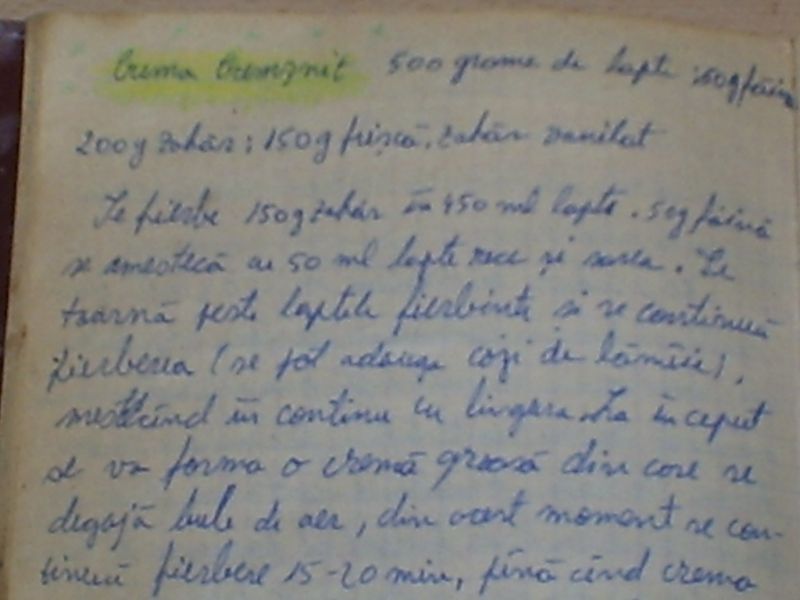 Crema Cremșnit 500 grame de lapte; 50g făină
200g zahăr; 150g frișcă, zahăr vanilat
Se fierbe 150g zahăr în 450 ml lapte. 50g făină
se amestecă cu 50 ml lapte rece și sarea. Se
toarnă peste laptele fierbinte și se continuă
fierberea (se pot adăuga coji de lămîie),
mestecînd în continu cu lingura. La început
se va forma o cremă groasă din care se
degajă bule de aer, din acest moment se con-
tinuă fierbere 15-20 min, pînă cînd crema